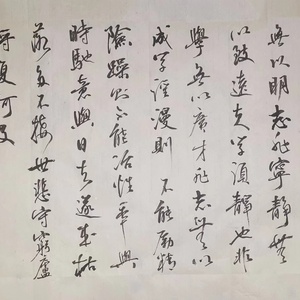 無以明志非寧靜無
以致遠夫学須靜也非
學無以廣才非志無以
成学淫漫則不能勵精
險躁則不能冶性年與
時馳意與日去遂成枯
落多不接世悲守窮廬
將復何及